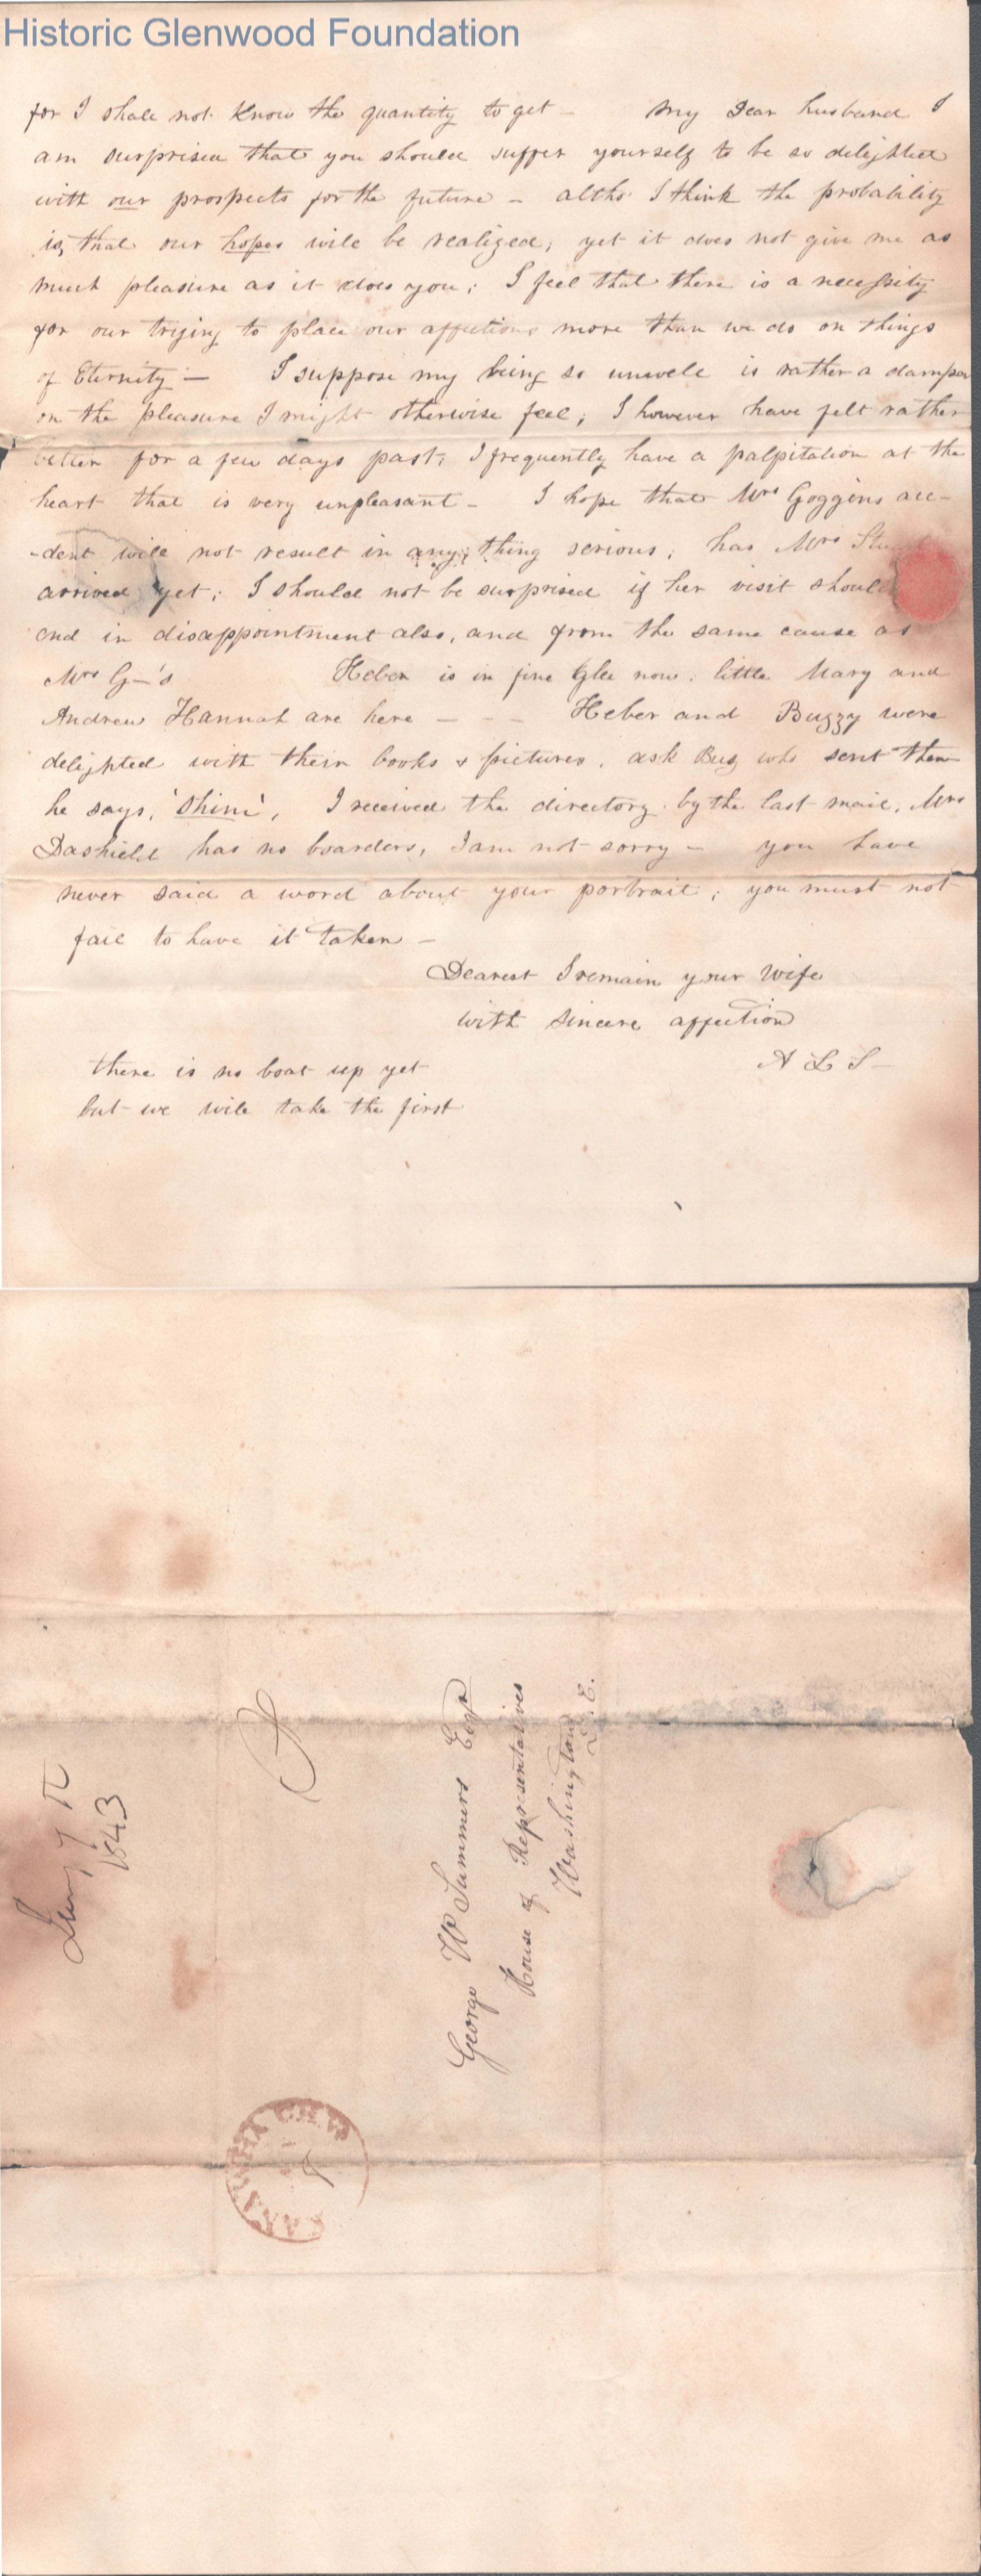 Historic Glenwood Foundation
for I shall not know the quantity to get – My Dear husband I
am surprised that you should suffer yourself to be so delighted
with our prospects for the future – altho' I think the probability
is, that our hopes will be realized; yet it does not give me as
much pleasure as it does you; I feel that there is a necessity
for our trying to place our affections more than we do on things
of Eternity – I suppose my being so unwell is rather a damper
on the pleasure I might otherwise feel; I however have felt rather
better for a few days past; I frequently have a palpitation at the
heart that is very unpleasant – I hope that Mrs Goggins acc-
-dent will not result in any thing serious; has Mrs
arrived yet; I should not be surprised if her visit should
end in disappointment also, and from the same cause as
Mrs G–'s Heber is in fine Glee now. little Mary and
Andrew Hannah are here – – – Heber and Buzzy were
delighted with their books & pictures, ask Bug who sent them
he says, 'Shim', I received the directory by the last mail, Mrs
Dashield has no boarders, I am not sorry – you have
never said a word about your portrait; you must not
fail to have it taken –
Dearest I remain your Wife
with sincere affection
A L S –
there is no boat up yet
but we will take the first
1843
George W Summers Esqr
House of Representatives
Washington
KANAWHA C.H. Va